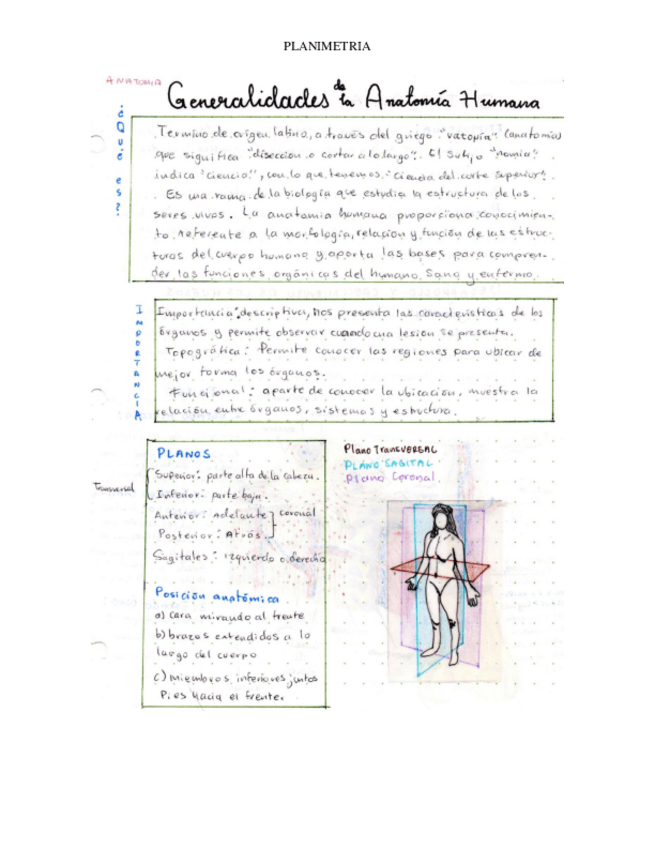 PLANIMETRIA
ANATOMIA
Generalidades de la Anatomía Humana
¿Qué es?
Termino de origen latino, a través del griego "vatopía" (anatomía)
que significa "diseccion o cortar a lo largo". El sufijo "nomia"
indica "ciencia", con lo que tenemos: "Ciencia del corte Superior".
Es una rama de la biología que estudia la estructura de los
seres vivos. La anatomia humana proporciona conocimien-
to referente a la morfología, relacion y función de las estruc-
turas del cuerpo humano y aporta las bases para compren-
der las funciones orgánicas del humano Sano y enfermo.
IMPORTANCIA
Importancia: descriptiva, Nos presenta las características de los
órganos y permite observar cuando una lesión se presenta.
Topográfica: Permite conocer las regiones para ubicar de
mejor forma los órganos.
Funcional: aparte de conocer la ubicación, muestra la
relación entre órganos, sistemas y estructura.
PLANOS
Transversal
Superior: parte alta de la cabeza.
Inferior: parte baja.
Anterior: Adelante
Posterior: Atrás
coronal
Sagitales: izquierdo o derecho
Posición anatómica
a) cara mirando al frente
b) brazos extendidos a lo
largo del cuerpo
c) miembros inferiores juntos
Pies hacia el frente.
Plano TRANSVERSAL
PLANO SAGITAL
Plano Coronal